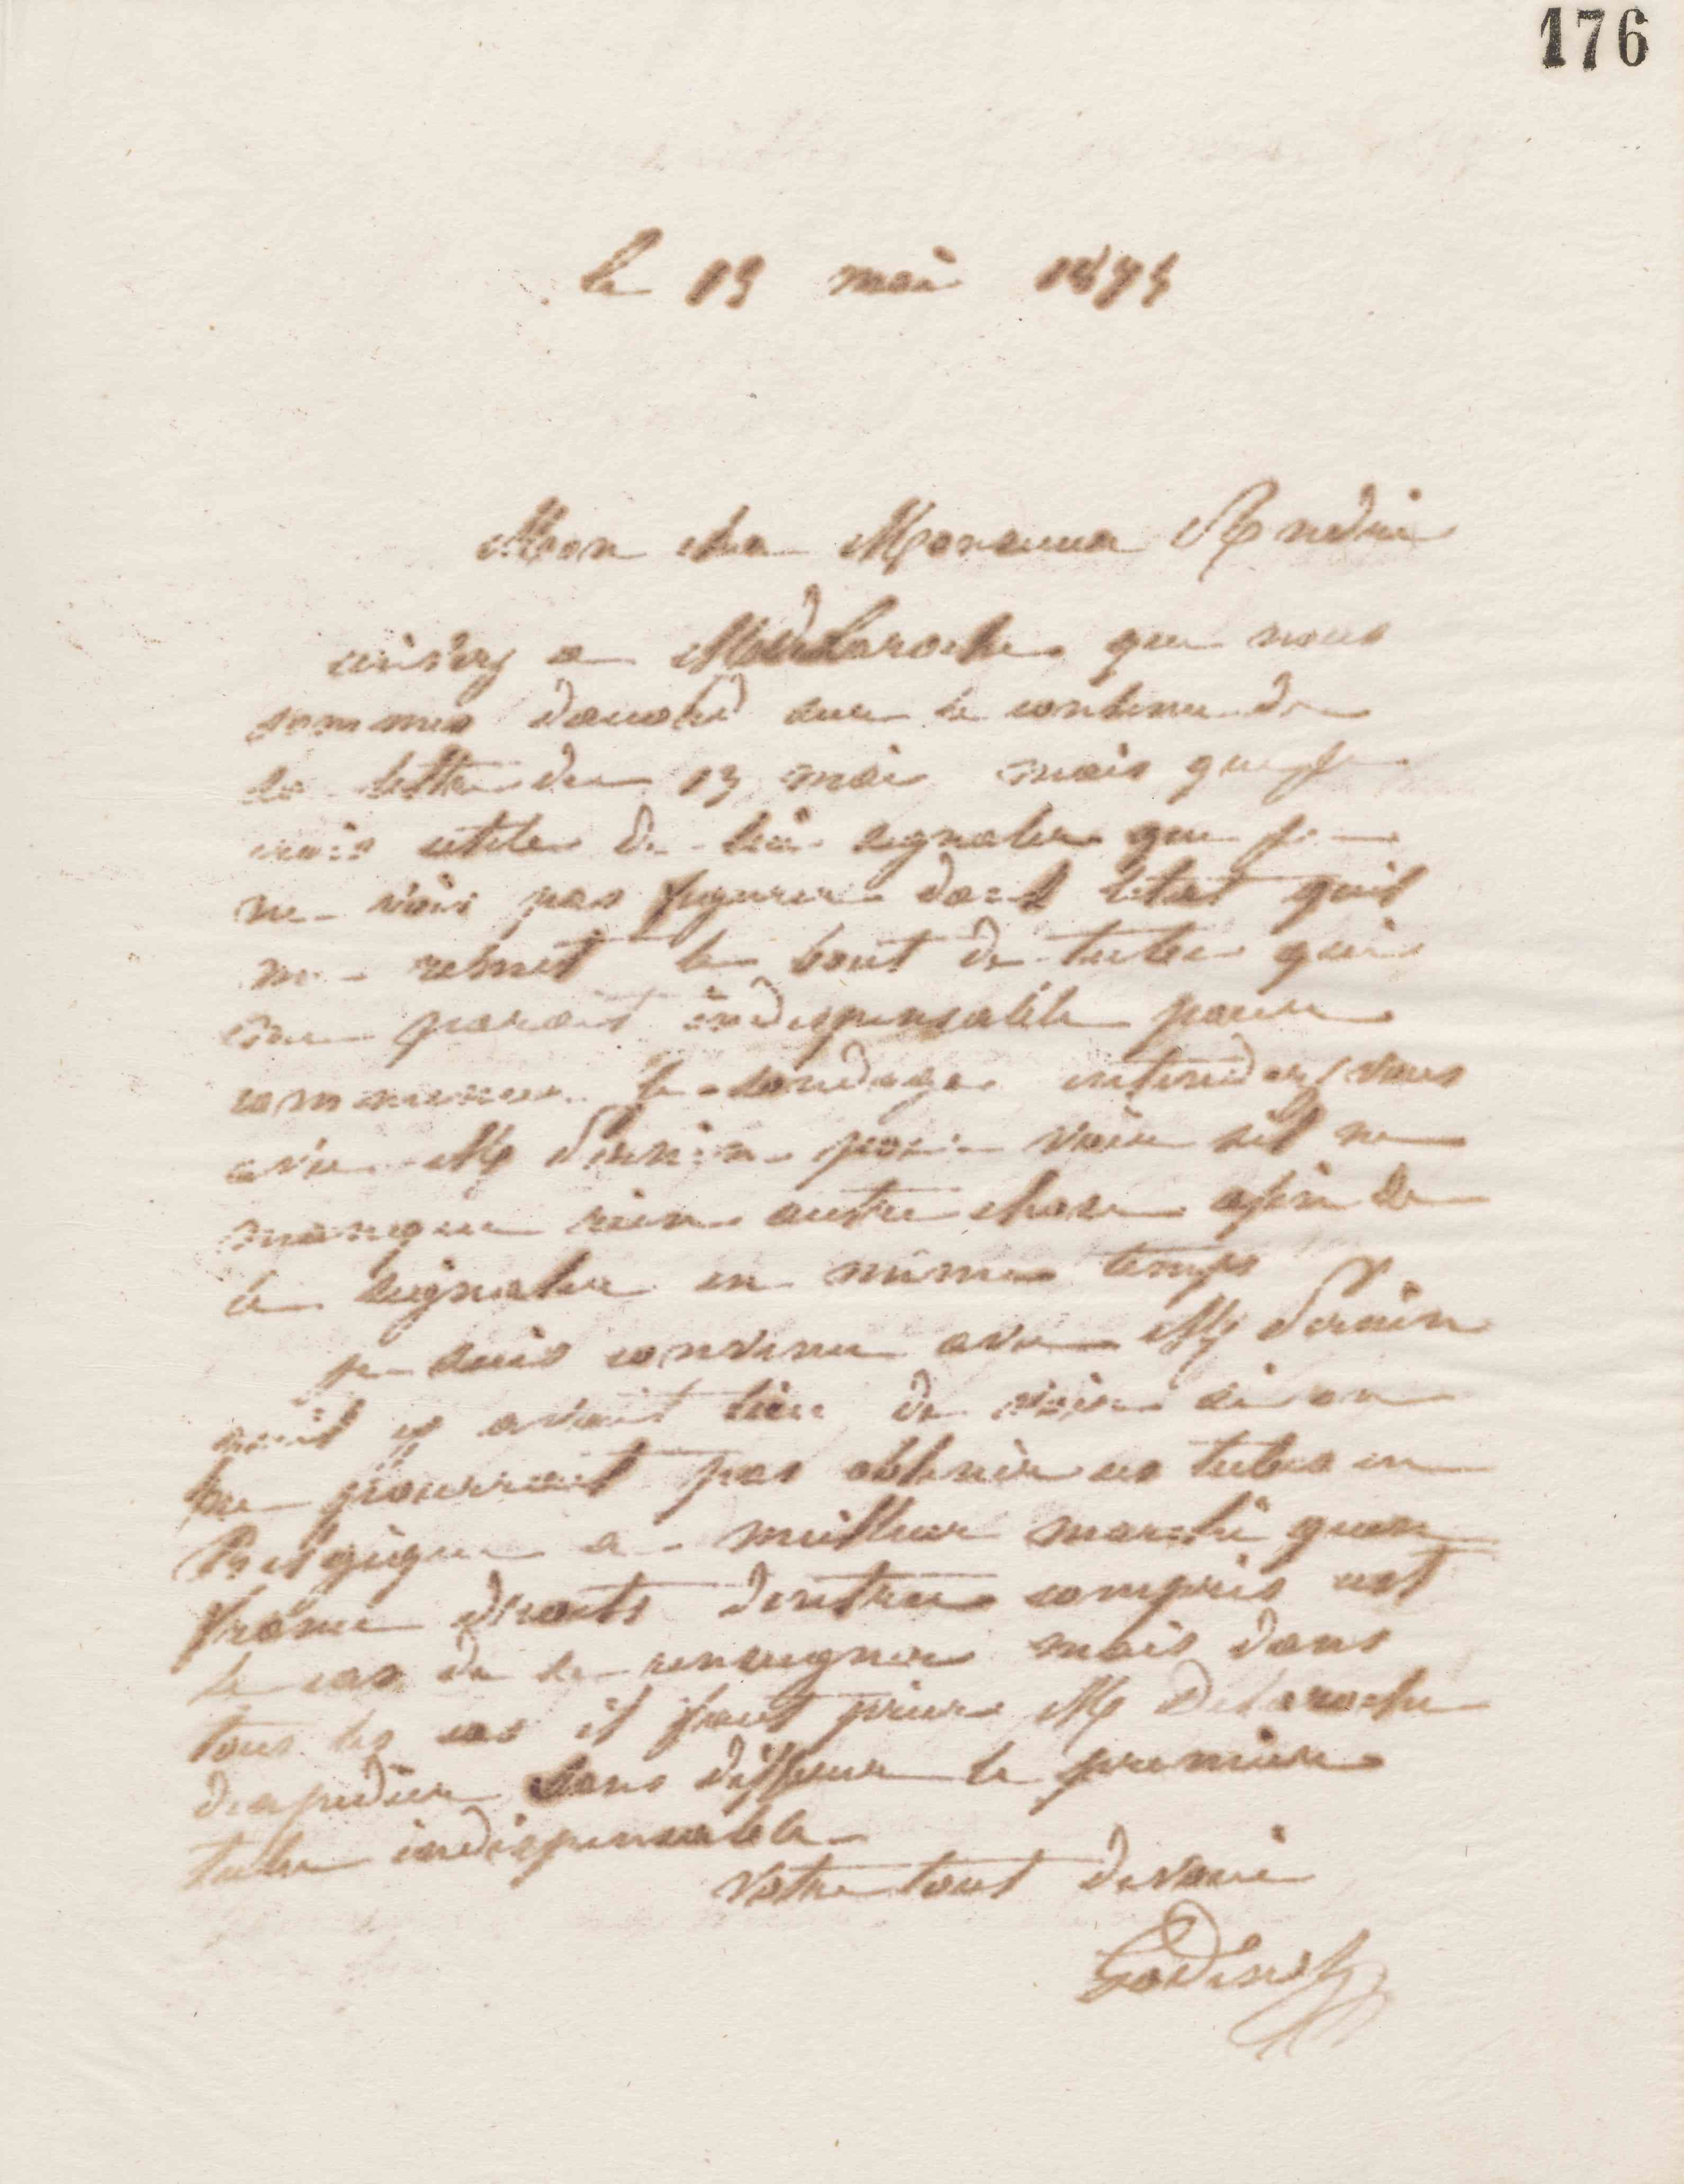 176
le 19 mai 1875
Mon cher Monsieur André
écrivez a M Delaroche que nous
sommes daccord sur le contenu de
sa lettre du 13 mai mais que je
crois utile de lui signaler que je
ne vois pas figurer dans letat quil
me remet le bout de tube qui
me parait indispensable pour
commencer le sondage entendez vous
avec M Pernin pour voir sil ne
manque rien autre chose afin de
le signaler en même temps
je suis convenu avec M Pernin
quil y avait lieu de voir si on
ne pourrait pas obtenir ces tubes en
Belgique a meilleur marché quen
france droits dentrée compris cest
le cas de se renseigner mais dans
tous les cas il faut prier M Delaroche
dexpedier sans differer le premier
tube indispensable
votre tout devoué
Godin